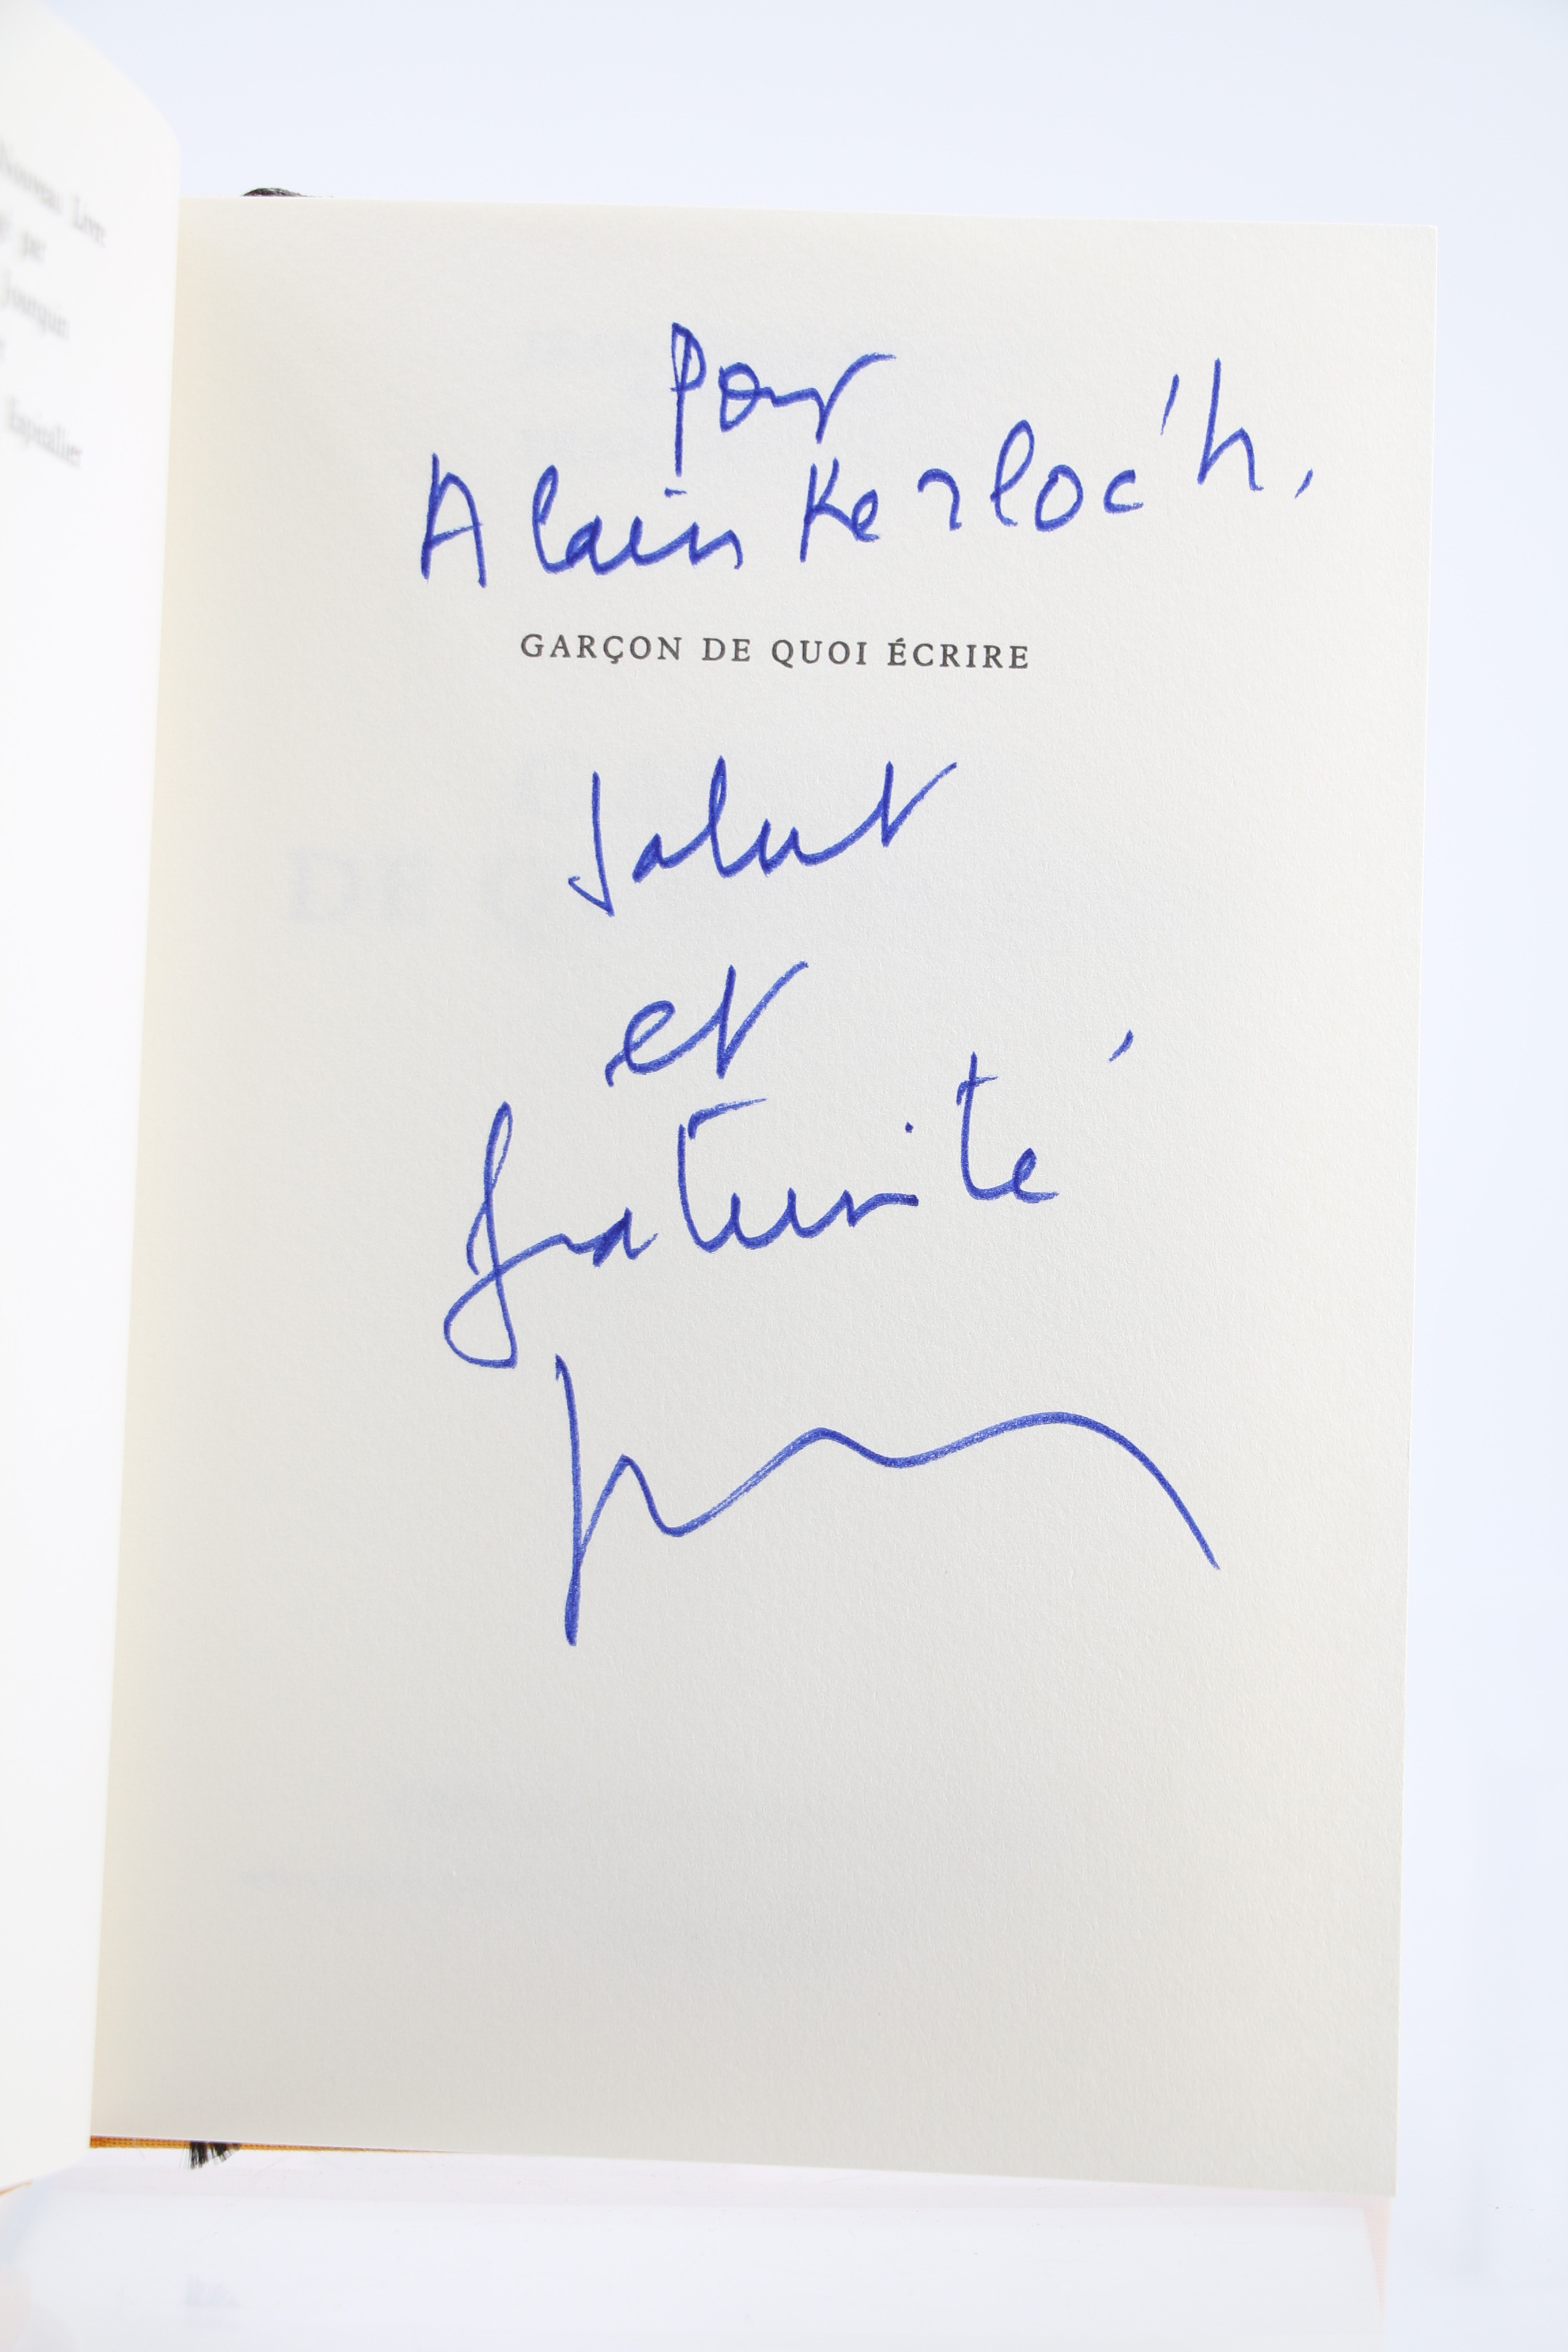 Nouveau Livre
par
Jourquin
Kapitalier
Pour
Alain Kerloc'h,
GARÇON DE QUOI ÉCRIRE
Salut
et
fraternité